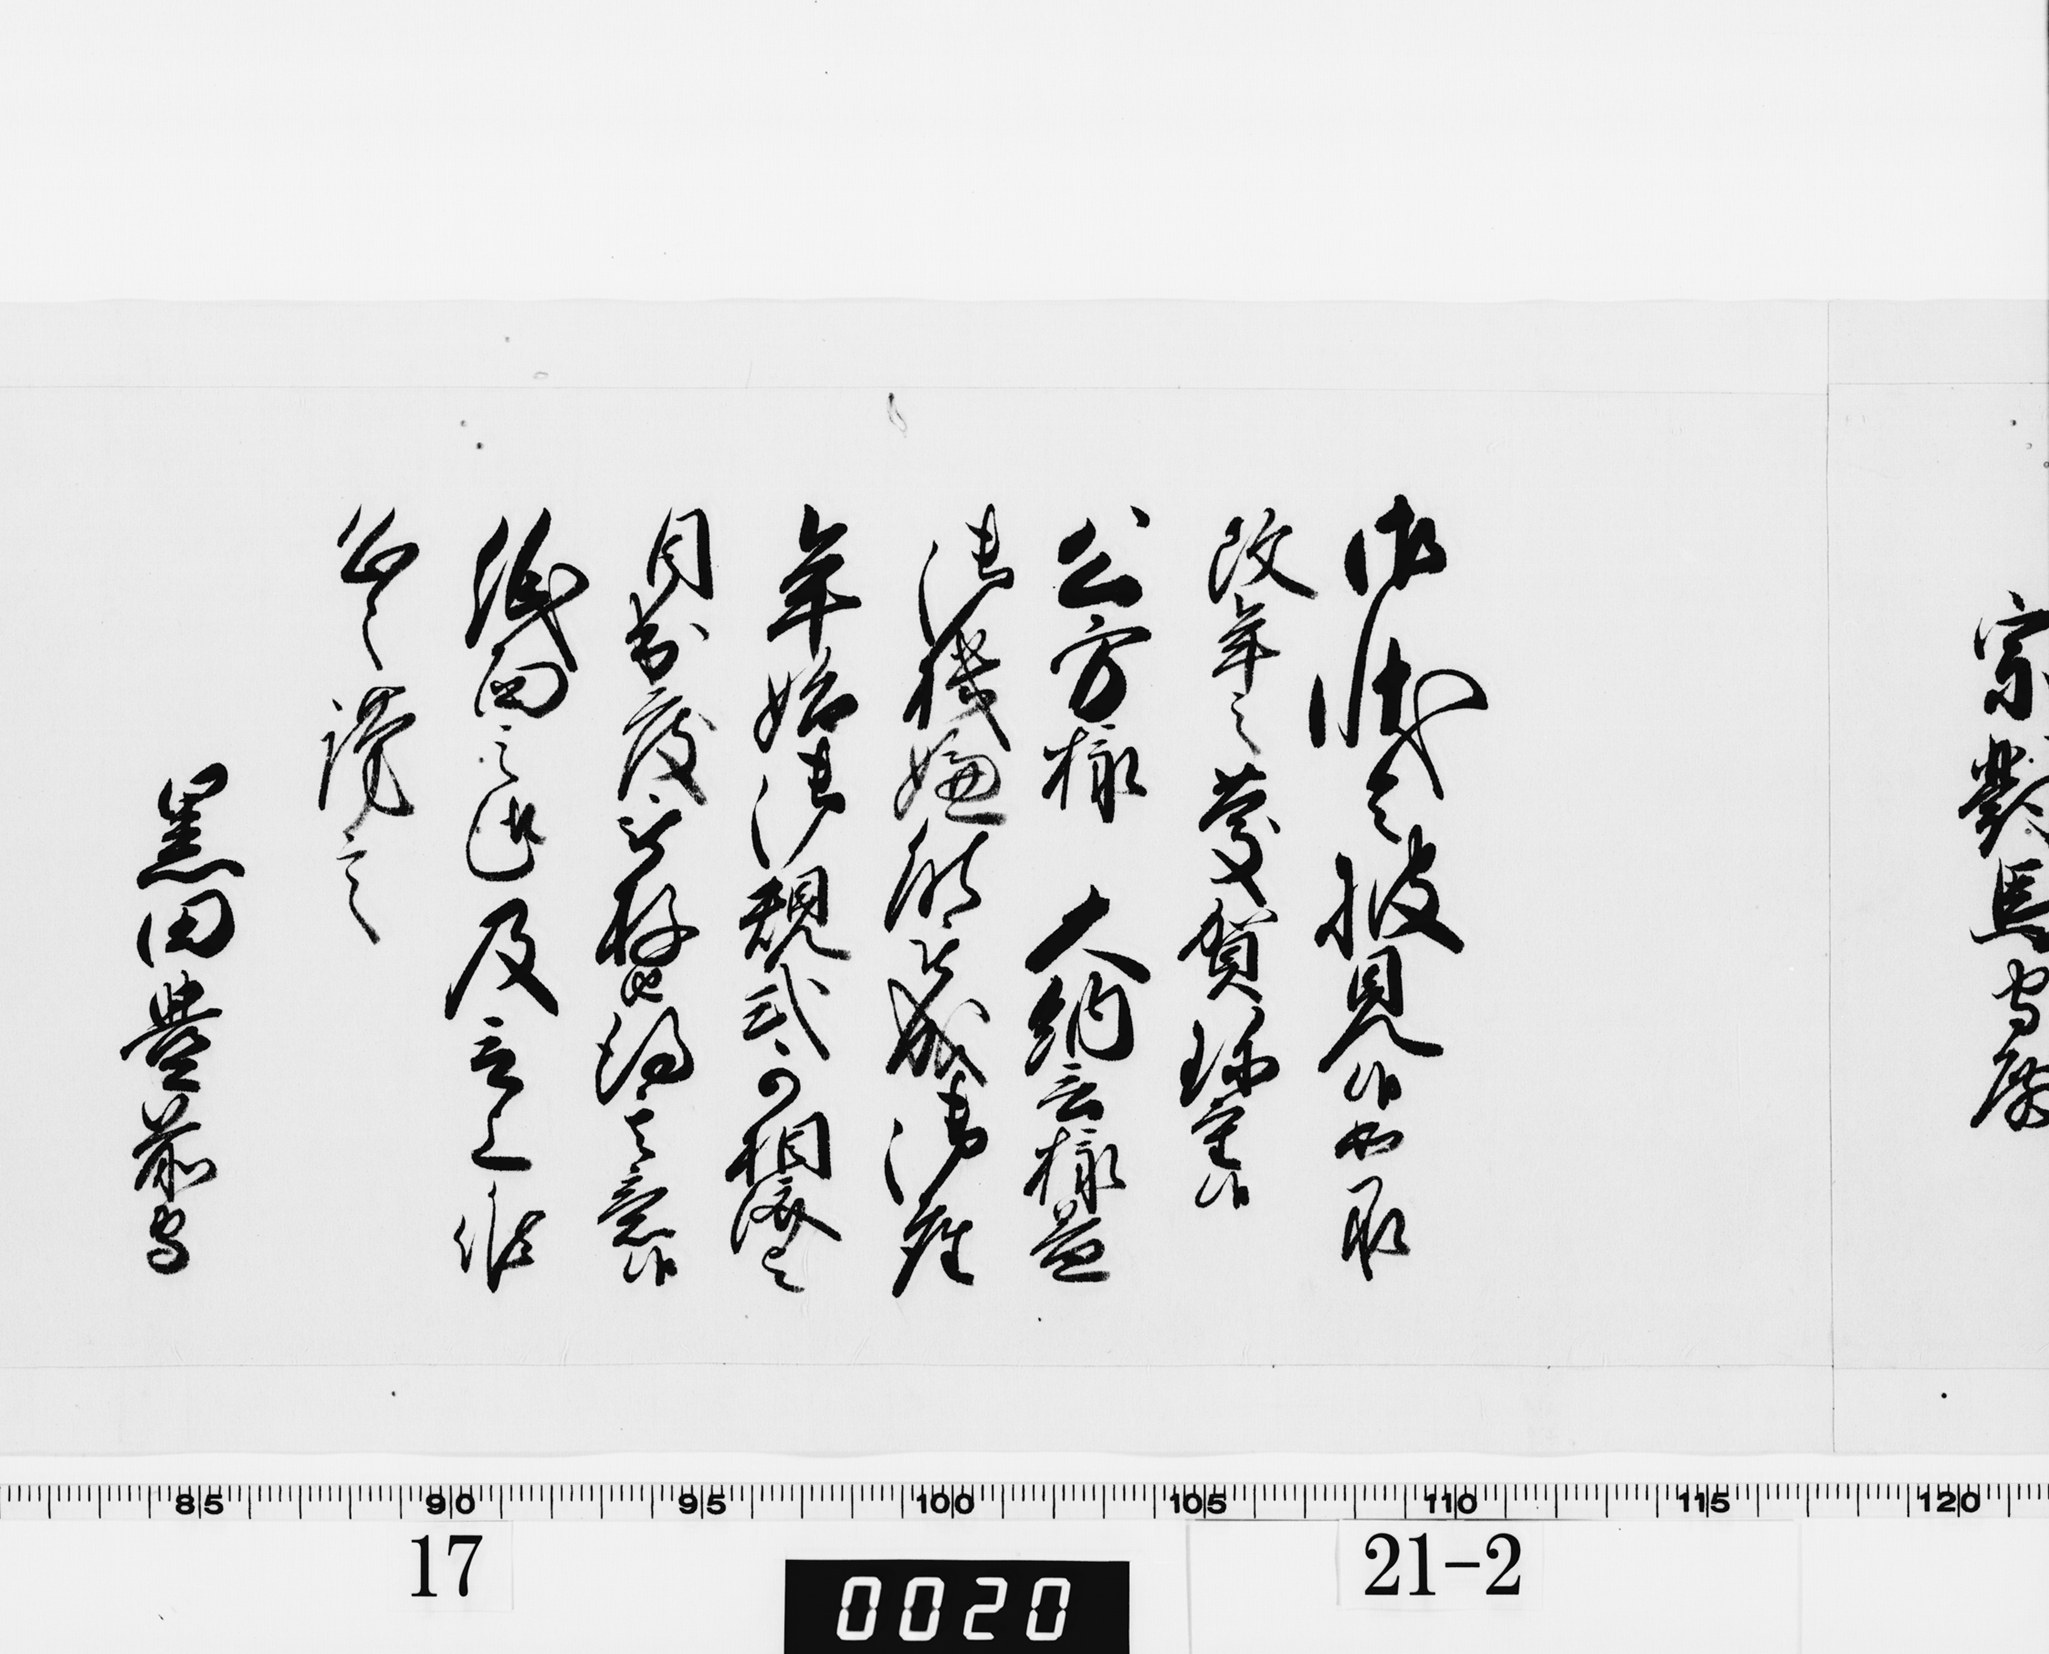 宗對馬守殿
御状令披見候如承
改年之慶賀珍重候
公方様 大納言様益
御機嫌能被成御座
年始御規式可相済与
目出度被存候得其意候
紙面之趣及言上候
恐々謹言
黒田豊前守
85 90 95 100 105 110 115 120
17
21-2
0020